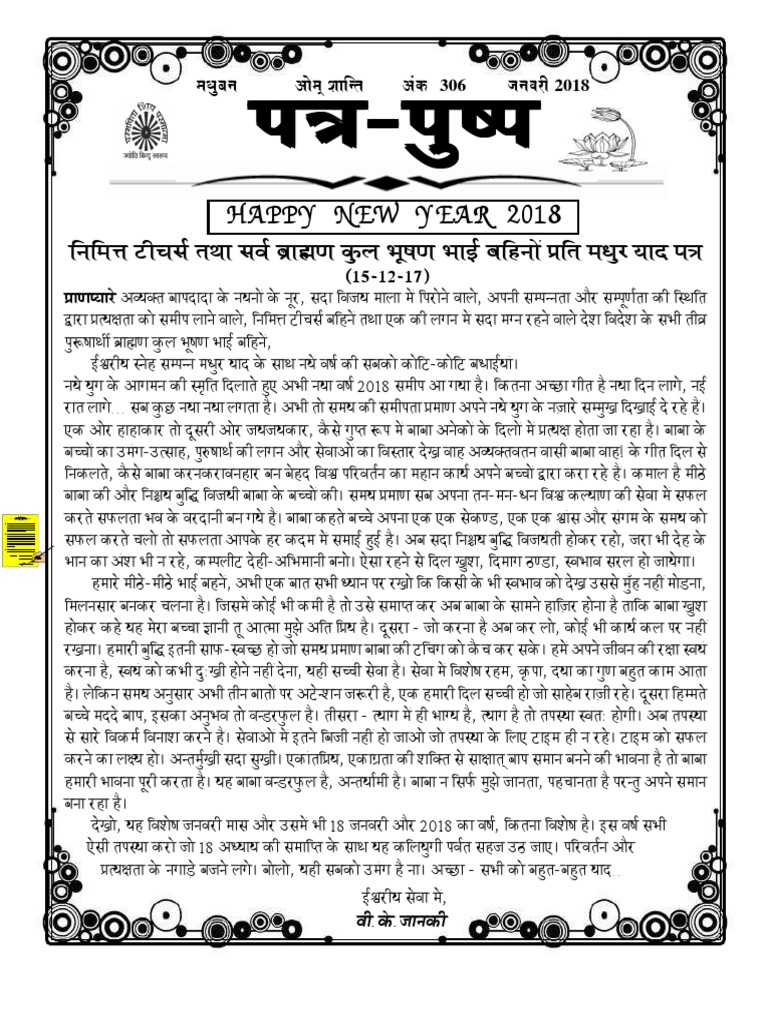 मधुबन ओम् शान्ति अंक 306 जनवरी 2018
पत्र-पुष्प
परमपिता शिव परमात्मा
ज्योति बिन्दु स्वरूप
HAPPY NEW YEAR 2018
निमित्त टीचर्स तथा सर्व ब्राह्मण कुल भूषण भाई बहिनों प्रति मधुर याद पत्र
(15-12-17)
प्राणप्यारे अव्यक्त बापदादा के नयनों के नूर, सदा विजय माला में पिरोने वाले, अपनी सम्पन्नता और सम्पूर्णता की स्थिति
द्वारा प्रत्यक्षता को समीप लाने वाले, निमित्त टीचर्स बहिनें तथा एक की लगन में सदा मग्न रहने वाले देश विदेश के सभी तीव्र
पुरूषार्थी ब्राह्मण कुल भूषण भाई बहिनें,
ईश्वरीय स्नेह सम्पन्न मधुर याद के साथ नये वर्ष की सबको कोटि-कोटि बधाईयां।
नये युग के आगमन की स्मृति दिलाते हुए अभी नया वर्ष 2018 समीप आ गया है। कितना अच्छा गीत है नया दिन लागे, नई
रात लागे... सब कुछ नया नया लगता है। अभी तो समय की समीपता प्रमाण अपने नये युग के नज़ारे सम्मुख दिखाई दे रहे हैं।
एक ओर हाहाकार तो दूसरी ओर जयजयकार, कैसे गुप्त रूप में बाबा अनेकों के दिलों में प्रत्यक्ष होता जा रहा है। बाबा के
बच्चों का उमंग-उत्साह, पुरुषार्थ की लगन और सेवाओं का विस्तार देख वाह अव्यक्तवतन वासी बाबा वाह! के गीत दिल से
निकलते, कैसे बाबा करनकरावनहार बन बेहद विश्व परिवर्तन का महान कार्य अपने बच्चों द्वारा करा रहे हैं। कमाल है मीठे
बाबा की और निश्चय बुद्धि विजयी बाबा के बच्चों की। समय प्रमाण सब अपना तन-मन-धन विश्व कल्याण की सेवा में सफल
करते सफलता भव के वरदानी बन गये हैं। बाबा कहते बच्चे अपना एक एक सेकण्ड, एक एक श्वांस और संगम के समय को
सफल करते चलो तो सफलता आपके हर कदम में समाई हुई है। अब सदा निश्चय बुद्धि विजयती होकर रहो, जरा भी देह के
भान का अंश भी न रहे, कम्पलीट देही-अभिमानी बनो। ऐसा रहने से दिल खुश, दिमाग ठण्डा, स्वभाव सरल हो जायेगा।
हमारे मीठे-मीठे भाई बहनें, अभी एक बात सभी ध्यान पर रखो कि किसी के भी स्वभाव को देख उससे मुंह नहीं मोड़ना,
मिलनसार बनकर चलना है। जिसमें कोई भी कमी है तो उसे समाप्त कर अब बाबा के सामने हाज़िर होना है ताकि बाबा खुश
होकर कहे यह मेरा बच्चा ज्ञानी तू आत्मा मुझे अति प्रिय है। दूसरा - जो करना है अब कर लो, कोई भी कार्य कल पर नहीं
रखना। हमारी बुद्धि इतनी साफ-स्वच्छ हो जो समय प्रमाण बाबा की टचिंग को कैच कर सके। हमें अपने जीवन की रक्षा स्वयं
करना है, स्वयं को कभी दु:खी होने नहीं देना, यही सच्ची सेवा है। सेवा में विशेष रहम, कृपा, दया का गुण बहुत काम आता
है। लेकिन समय अनुसार अभी तीन बातों पर अटेन्शन जरूरी है, एक हमारी दिल सच्ची हो जो साहेब राज़ी रहे। दूसरा हिम्मते
बच्चे मददे बाप, इसका अनुभव तो वन्डरफुल है। तीसरा - त्याग में ही भाग्य है, त्याग है तो तपस्या स्वत: होगी। अब तपस्या
से सारे विकर्म विनाश करने हैं। सेवाओं में इतने बिजी नहीं हो जाओ जो तपस्या के लिए टाइम ही न रहे। टाइम को सफल
करने का लक्ष्य हो। अन्तर्मुखी सदा सुखी। एकांतप्रिय, एकाग्रता की शक्ति से साक्षात् बाप समान बनने की भावना है तो बाबा
हमारी भावना पूरी करता है। यह बाबा वन्डरफुल है, अन्तर्यामी है। बाबा न सिर्फ मुझे जानता, पहचानता है परन्तु अपने समान
बना रहा है।
देखो, यह विशेष जनवरी मास और उसमें भी 18 जनवरी और 2018 का वर्ष, कितना विशेष है। इस वर्ष सभी
ऐसी तपस्या करो जो 18 अध्याय की समाप्ति के साथ यह कलियुगी पर्वत सहज उठ जाए। परिवर्तन और
प्रत्यक्षता के नगाड़े बजने लगें। बोलो, यही सबको उमंग है ना। अच्छा - सभी को बहुत-बहुत याद..
ईश्वरीय सेवा में,
वी.के. जानकी